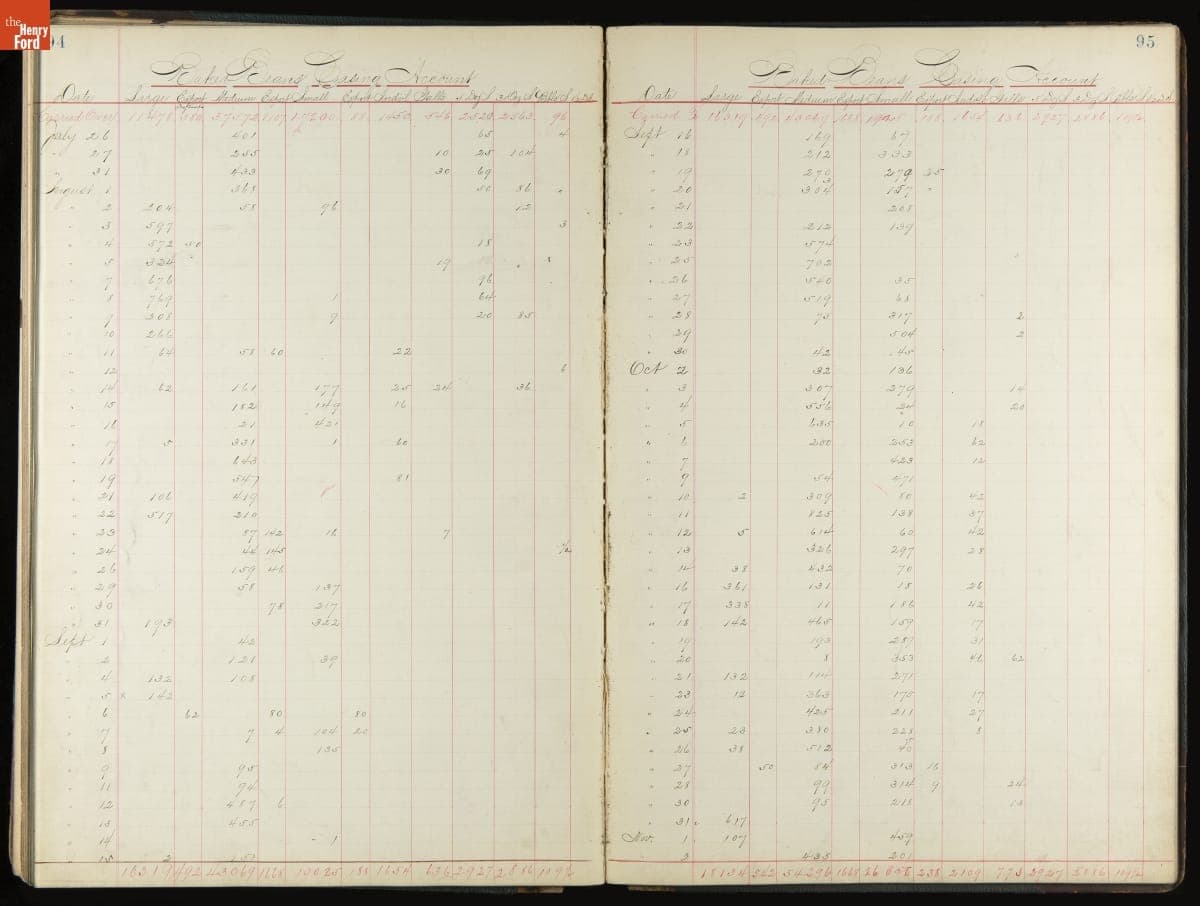 the
Henry
Ford
94
Baked Beans Casing Account
Date Large Export Medium Export Small Export
Carried Over 11478 37572 1107 17200 188 1450 546 2528 2563 96
July 26 401 65 4
" 27 255 10 25 104
" 31 433 30 69
August 1 368 50 86 "
" 2 204 58 96 12
" 3 597 3
" 4 572 50 18
" 5 324 19
" 7 676 96
" 8 769 1 64
" 9 308 9 20 85
" 10 266
" 11 64 58 60 22
" 12 6
" 14 62 161 177 25 24 36
" 15 182 149 16
" 16 21 421
" 17 5 331 1 60
" 18 643
" 19 547 81
" 21 106 419
" 22 517 210
" 23 57 142 16 7
" 24 44 145 1/2
" 26 159 46
" 29 58 137
" 30 78 217
" 31 193 322
Sept 1 42
" 2 121 39
" 4 132 108
" 5 x 142
" 6 62 80 80
" 7 7 4 104 20
" 8 135
" 9 95
" 11 94
" 12 487 6
" 13 455
" 14 - 1
" 15 2
16319 492 43069 1668 19025 188 1654 636 2927 2886 109 1/2
95
Baked Beans Casing Account
Date Large Export Medium Export Small Export
16319 492 43069 1668 19025 188 1654 636 2927 2886 109 1/2
Sept 16 169 67
" 18 212 333
" 19 270 279 25
" 20 304 157 "
" 21 208
" 22 212 139
" 23 574
" 25 702
" 26 540 35
" 27 519 68
" 28 75 317 2
" 29 504 2
" 30 42 45
Oct 2 32 136
" 3 307 279 14
" 4 556 24 20
" 5 635 10 18
" 6 200 253 62
" 7 423 12
" 9 54 471
" 10 2 309 80 42
" 11 825 138 37
" 12 5 614 60 42
" 13 326 297 28
" 14 38 432 70
" 16 361 131 18 26
" 17 338 11 186 42
" 18 142 465 159 17
" 19 193 287 31
" 20 8 353 41 62
" 21 132 114 271
" 23 12 363 175 17
" 24 425 211 27
" 25 23 380 228 8
" 26 38 512 40
" 27 50 84 313 16
" 28 99 314 9 24
" 30 95 218 13
" 31 617
Nov. 1 107 459
" 2 435 201
18134 542 54296 1668 238 2109 773 2927 2886 109 1/2